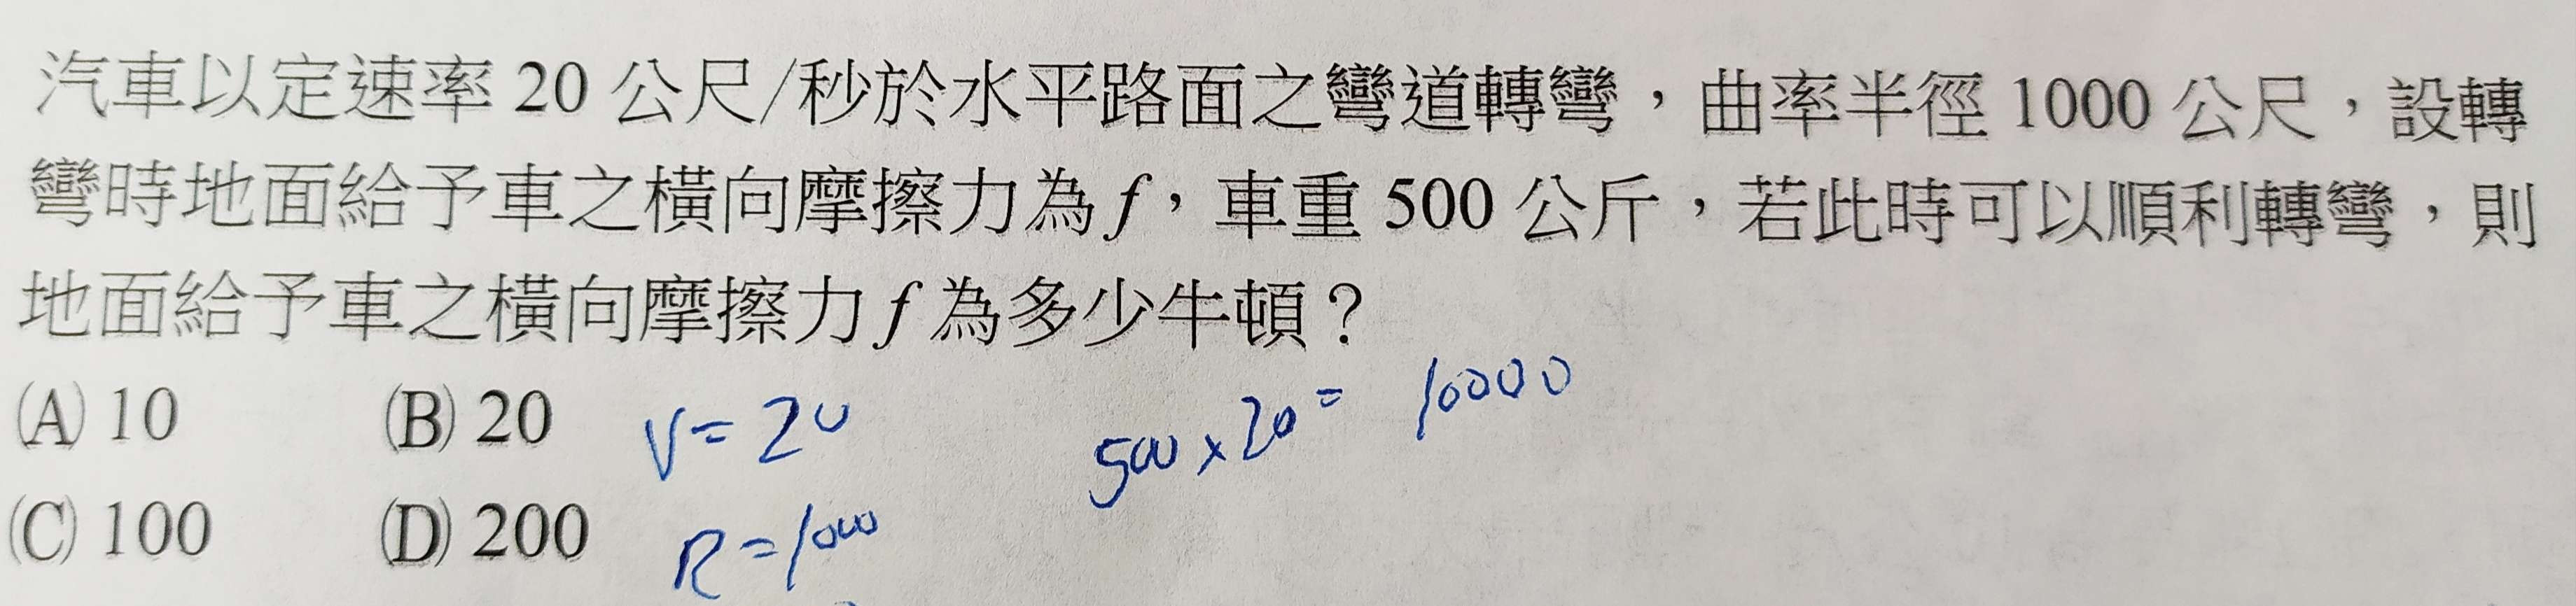 汽車以定速率 20 公尺/秒於水平路面之彎道轉彎，曲率半徑 1000 公尺，設轉
彎時地面給予車之橫向摩擦力為 f，車重 500 公斤，若此時可以順利轉彎，則
地面給予車之橫向摩擦力 f 為多少牛頓？
(A) 10 (B) 20 V=20 500×20= 10000
(C) 100 (D) 200 R=1000